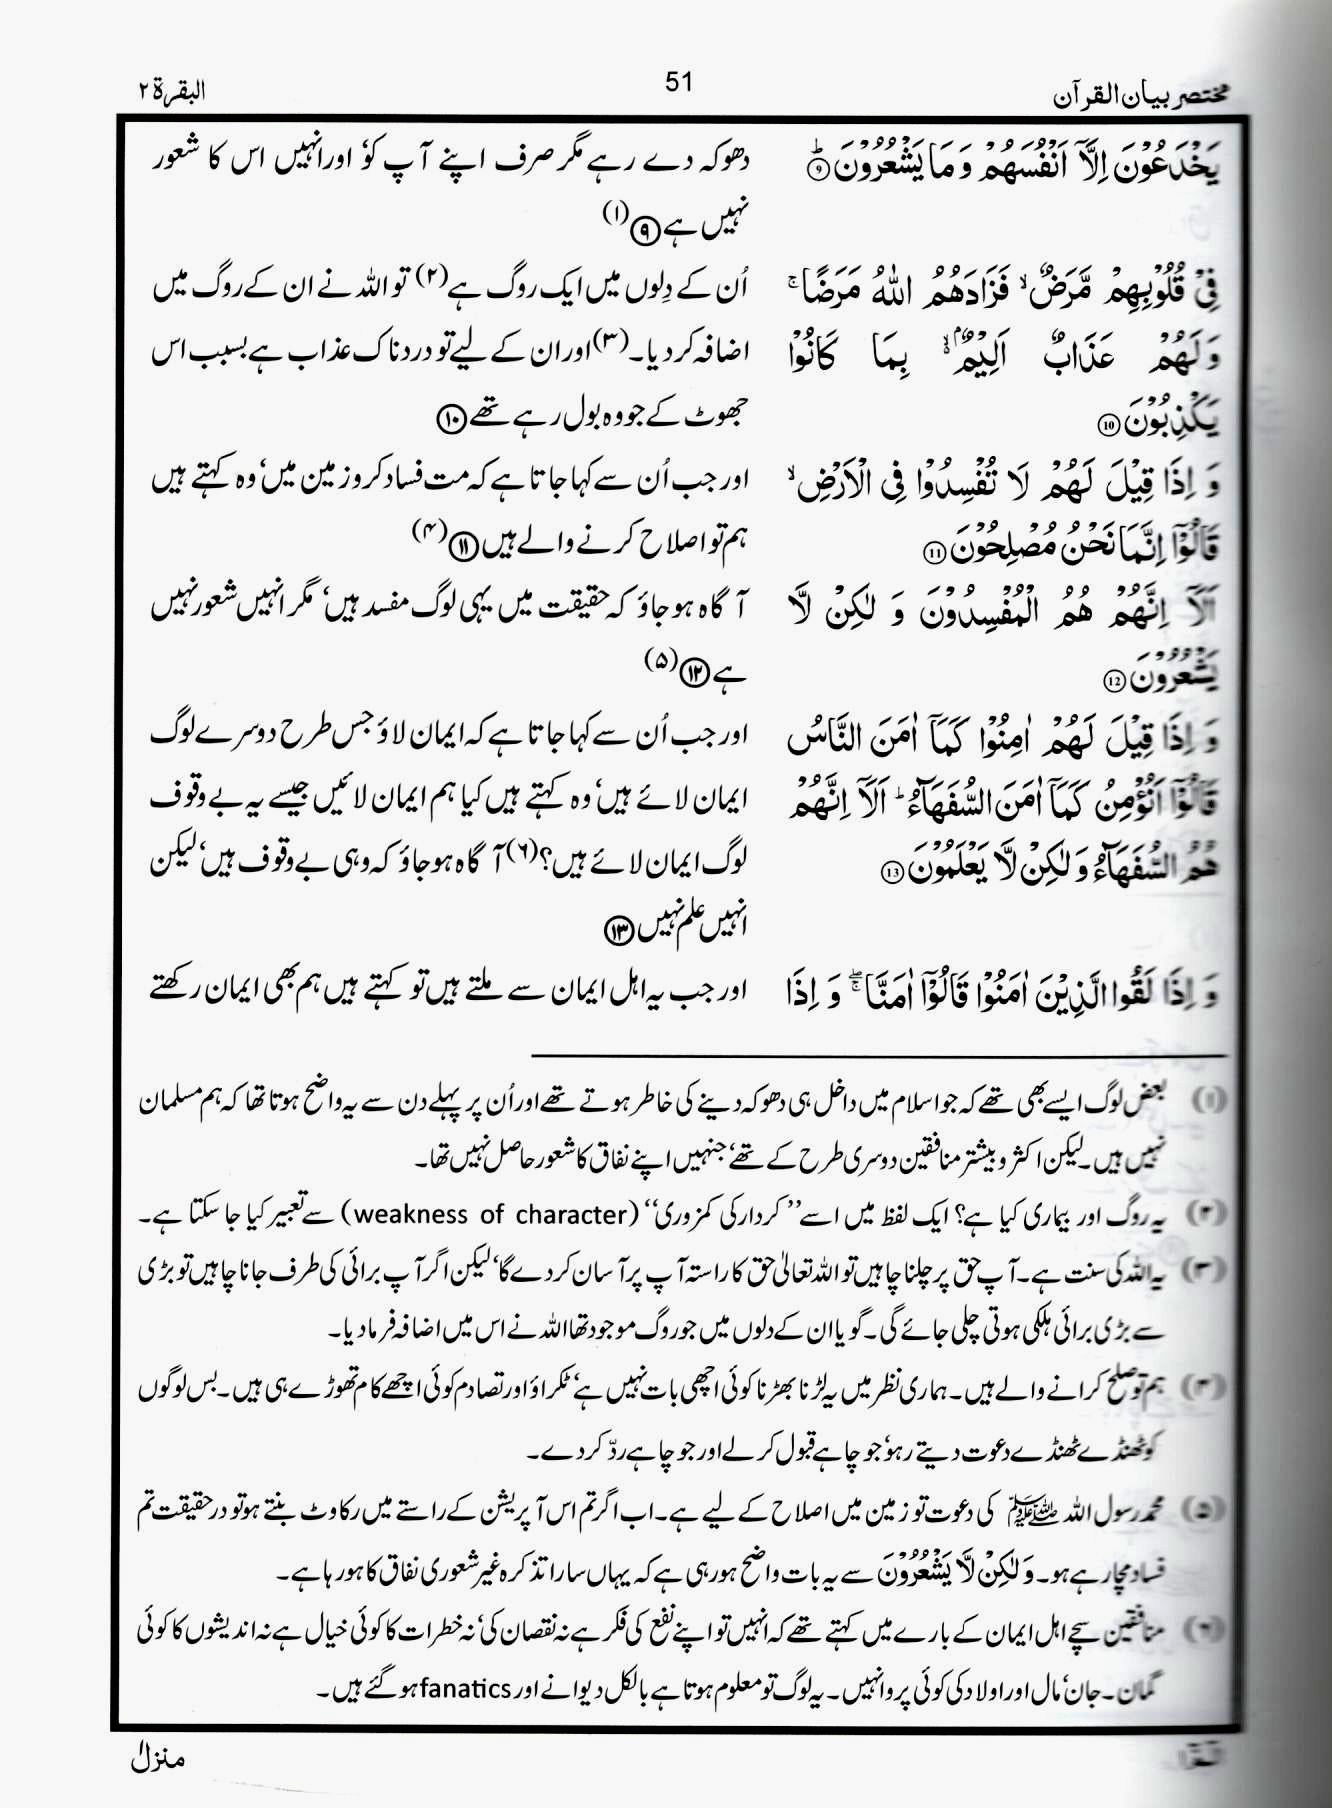 مختصر بیان القرآن
51
البقرۃ ۲
يَخْدَعُوْنَ اِلَّاۤ اَنْفُسَهُمْ وَ مَا يَشْعُرُوْنَؕ ⑨
دھوکہ دے رہے مگر صرف اپنے آپ کو‘ اور انہیں اس کا شعور
نہیں ہے ⑨ (۱)
فِيْ قُلُوْبِهِمْ مَّرَضٌۙ فَزَادَهُمُ اللّٰهُ مَرَضًاۚ
اُن کے دِلوں میں ایک روگ ہے (۲) تو اللہ نے ان کے روگ میں
وَ لَهُمْ عَذَابٌ اَلِيْمٌۢۙ بِمَا كَانُوْا
اضافہ کر دیا۔ (۳) اور ان کے لیے تو دردناک عذاب ہے بسبب اس
يَكْذِبُوْنَ ⑩
جھوٹ کے جو وہ بول رہے تھے ⑩
وَ اِذَا قِيْلَ لَهُمْ لَا تُفْسِدُوْا فِي الْاَرْضِۙ
اور جب اُن سے کہا جاتا ہے کہ مت فساد کرو زمین میں‘ وہ کہتے ہیں
قَالُوْۤا اِنَّمَا نَحْنُ مُصْلِحُوْنَ ⑪
ہم تو اصلاح کرنے والے ہیں ⑪ (۴)
اَلَاۤ اِنَّهُمْ هُمُ الْمُفْسِدُوْنَ وَ لٰكِنْ لَّا
آگاہ ہو جاؤ کہ حقیقت میں یہی لوگ مفسد ہیں‘ مگر انہیں شعور نہیں
يَشْعُرُوْنَ ⑫
ہے ⑫ (۵)
وَ اِذَا قِيْلَ لَهُمْ اٰمِنُوْا كَمَاۤ اٰمَنَ النَّاسُ
اور جب اُن سے کہا جاتا ہے کہ ایمان لاؤ جس طرح دوسرے لوگ
قَالُوْۤا اَنُؤْمِنُ كَمَاۤ اٰمَنَ السُّفَهَآءُؕ اَلَاۤ اِنَّهُمْ
ایمان لائے ہیں‘ وہ کہتے ہیں کیا ہم ایمان لائیں جیسے یہ بے وقوف
هُمُ السُّفَهَآءُ وَ لٰكِنْ لَّا يَعْلَمُوْنَ ⑬
لوگ ایمان لائے ہیں؟ (۶) آگاہ ہو جاؤ کہ وہی بے وقوف ہیں‘ لیکن
انہیں علم نہیں ⑬
وَ اِذَا لَقُوا الَّذِيْنَ اٰمَنُوْا قَالُوْۤا اٰمَنَّاۚۖ وَ اِذَا
اور جب یہ اہل ایمان سے ملتے ہیں تو کہتے ہیں ہم بھی ایمان رکھتے
(۱) بعض لوگ ایسے بھی تھے کہ جو اسلام میں داخل ہی دھوکہ دینے کی خاطر ہوتے تھے اور اُن پر پہلے دن سے یہ واضح ہوتا تھا کہ ہم مسلمان
نہیں ہیں۔ لیکن اکثر و بیشتر منافقین دوسری طرح کے تھے‘ جنہیں اپنے نفاق کا شعور حاصل نہیں تھا۔
(۲) یہ روگ اور بیماری کیا ہے؟ ایک لفظ میں اسے ’’کردار کی کمزوری‘‘ (weakness of character) سے تعبیر کیا جا سکتا ہے۔
(۳) یہ اللہ کی سنت ہے۔ آپ حق پر چلنا چاہیں تو اللہ تعالیٰ حق کا راستہ آپ پر آسان کر دے گا‘ لیکن اگر آپ برائی کی طرف جانا چاہیں تو بڑی
سے بڑی برائی ہلکی ہوتی چلی جائے گی۔ گویا ان کے دلوں میں جو روگ موجود تھا اللہ نے اس میں اضافہ فرما دیا۔
(۴) ہم تو صلح کرانے والے ہیں۔ ہماری نظر میں یہ لڑنا بھڑنا کوئی اچھی بات نہیں ہے‘ ٹکراؤ اور تصادم کوئی اچھے کام تھوڑے ہی ہیں۔ بس لوگوں
کو ٹھنڈے ٹھنڈے دعوت دیتے رہو‘ جو چاہے قبول کر لے اور جو چاہے ردّ کر دے۔
(۵) محمد رسول اللہ ﷺ کی دعوت تو زمین میں اصلاح کے لیے ہے۔ اب اگر تم اس آپریشن کے راستے میں رکاوٹ بنتے ہو تو درحقیقت تم
فساد مچا رہے ہو۔ وَلٰكِنْ لَّا يَشْعُرُوْنَ سے یہ بات واضح ہو رہی ہے کہ یہاں سارا تذکرہ غیر شعوری نفاق کا ہو رہا ہے۔
(۶) منافقین سچے اہل ایمان کے بارے میں کہتے تھے کہ انہیں تو اپنے نفع کی فکر ہے نہ نقصان کی‘ نہ خطرات کا کوئی خیال ہے نہ اندیشوں کا کوئی
گمان۔ جان‘ مال اور اولاد کی کوئی پروا نہیں۔ یہ لوگ تو معلوم ہوتا ہے بالکل دیوانے اور fanatics ہو گئے ہیں۔
منزل۱